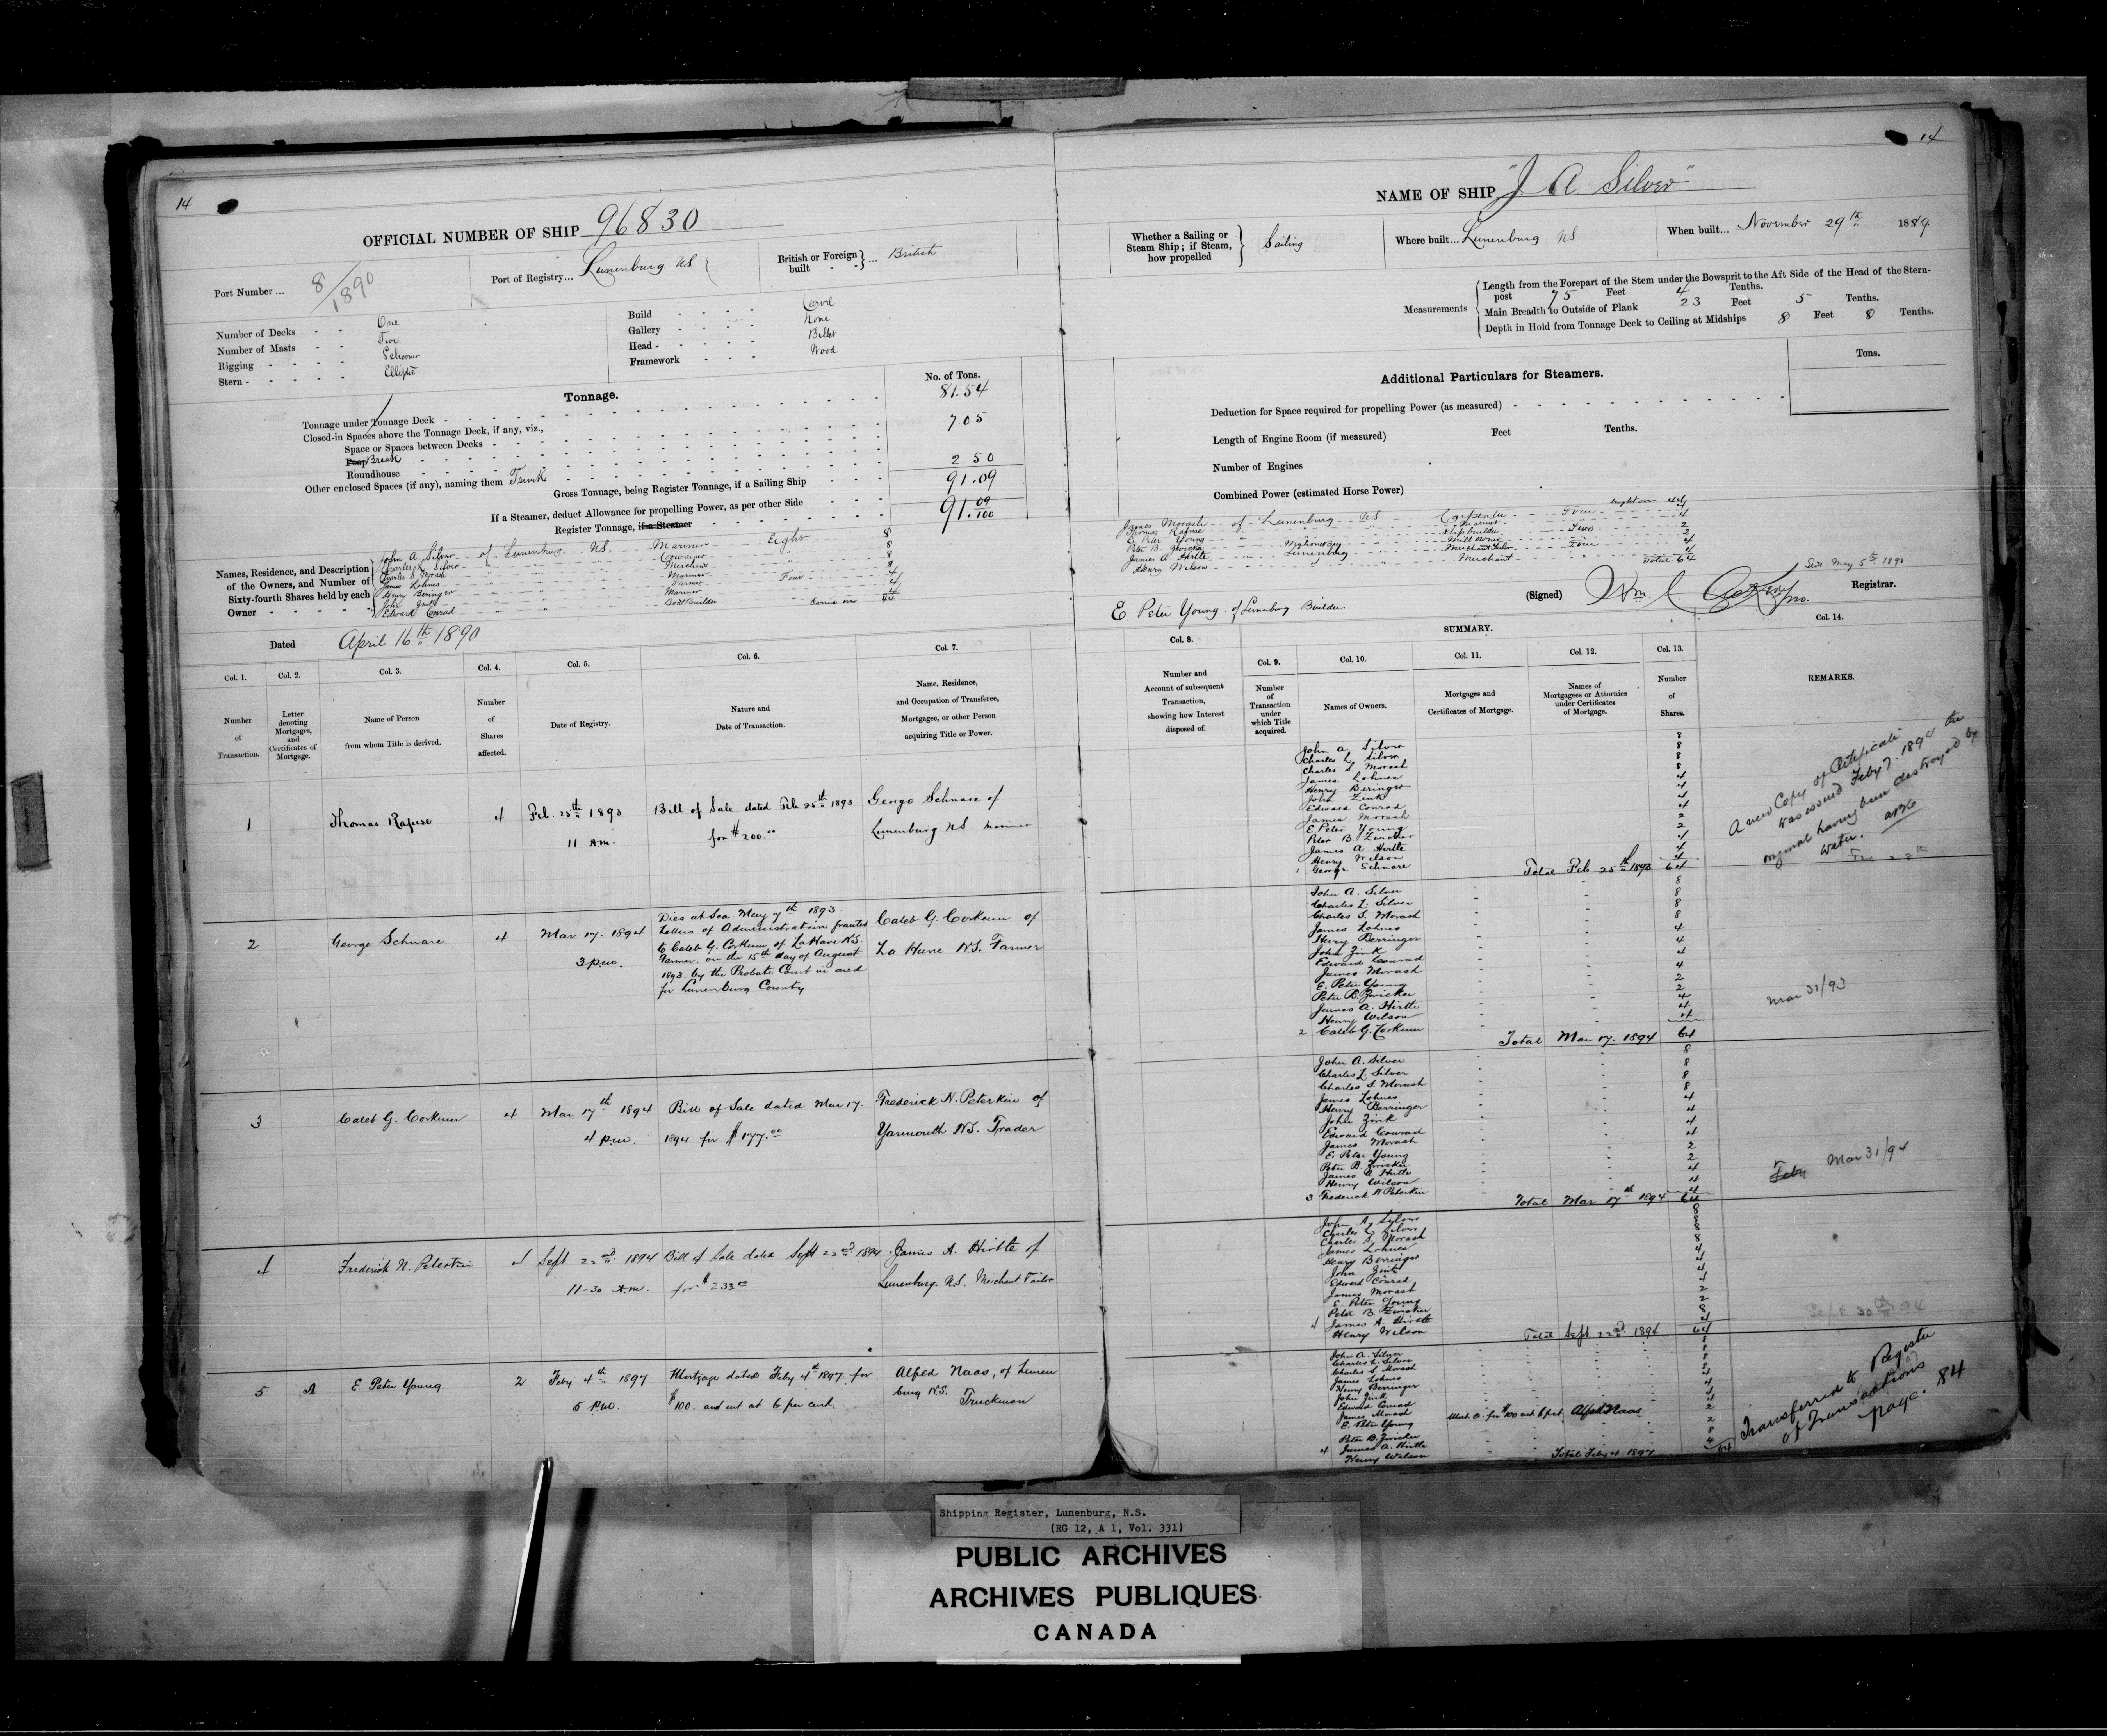 14
OFFICIAL NUMBER OF SHIP 96830
Port Number ... 8/1890
Port of Registry... Lunenburg NS
British or Foreign built - - } ... British
Number of Decks - - One
Number of Masts - - Two
Rigging - - - - - Schooner
Stern - - - - - - Elliptic
Build - - - - Carvel
Gallery - - - - None
Head - - - - - Billet
Framework - - - Wood
Tonnage.
No. of Tons.
Tonnage under Tonnage Deck - 81.54
Closed-in Spaces above the Tonnage Deck, if any, viz.,
Space or Spaces between Decks - 7.05
Poop Break
Roundhouse 2 50
Other enclosed Spaces (if any), naming them Trunk
Gross Tonnage, being Register Tonnage, if a Sailing Ship 91.09
If a Steamer, deduct Allowance for propelling Power, as per other Side
Register Tonnage, if a Steamer 91. 09/100
Names, Residence, and Description of the Owners, and Number of Sixty-fourth Shares held by each Owner
John A Silver of Lunenburg NS Mariner Eight 8
Charles L Silver 8
Charles S Morash Merchant 8
James Lohnes Mariner 8
Henry Beringer Farmer Four 4
John Zink Mariner 4
Edward Conrad Boat Builder 4
Carried over 44
Dated April 16th 1890
Col. 1. Number of Transaction.
Col. 2. Letter denoting Mortgages, and Certificates of Mortgage.
Col. 3. Name of Person from whom Title is derived.
Col. 4. Number of Shares affected.
Col. 5. Date of Registry.
Col. 6. Nature and Date of Transaction.
Col. 7. Name, Residence, and Occupation of Transferee, Mortgagee, or other Person acquiring Title or Power.
1 Thomas Rafuse 4 Feb. 25th 1893 Bill of Sale dated Feb. 25th 1893 George Schnare of
11 A.M. for $200.00 Lunenburg N.S. Mariner
2 George Schnare 4 Mar 17. 1894 Dies at Sea May 7th 1893. Caleb G. Corkum of
3 p.m. Letters of Administration granted La Have N.S. Farmer
to Caleb G. Corkum of LaHave N.S.
Farmer. on the 15th day of August
1893 by the Probate Court in and
for Lunenburg County
3 Caleb G. Corkum 4 Mar 17th 1894 Bill of Sale dated Mar 17. Frederick N. Peterkin of
4 p.m. 1894 for $177.00 Yarmouth N.S. Trader
4 Frederick N. Peterkin 4 Sept. 22nd 1894 Bill of Sale dated Sept 22nd 1894 James A. Hirtle of
11-30 A.M. for $233.00 Lunenburg. N.S. Merchant Tailor
5 A E Peter Young 2 Feby 4th 1897 Mortgage dated Feby 4th 1897 for Alfred Naas, of Lunen
5 p.m. $100. and int at 6 per cent. burg N.S. Truckman
14
NAME OF SHIP "J A Silver"
Whether a Sailing or Steam Ship; if Steam, how propelled } Sailing
Where built... Lunenburg NS
When built... November 29th 1889.
Measurements
Length from the Forepart of the Stem under the Bowsprit to the Aft Side of the Head of the Stern-post 75 Feet 4 Tenths.
Main Breadth to Outside of Plank 23 Feet 5 Tenths.
Depth in Hold from Tonnage Deck to Ceiling at Midships 8 Feet 8 Tenths.
Additional Particulars for Steamers.
Tons.
Deduction for Space required for propelling Power (as measured)
Length of Engine Room (if measured) Feet Tenths.
Number of Engines
Combined Power (estimated Horse Power)
brought over 44
James Morash of Lunenburg NS Carpenter Four 4
Thomas Rafuse Mariner 4
E Peter Young Shipbuilder Two 2
Peter B. Zwicker Mahone Bay Mill owner 2
James A Hirtle Lunenburg Merchant Tailor Four 4
Henry Wilson Merchant 4
Total 64
E. Peter Young of Lunenburg Builder.
May 5th 1890
(Signed) Wm. Registrar.
SUMMARY.
Col. 8. Number and Account of subsequent Transaction, showing how Interest disposed of.
Col. 9. Number of Transaction under which Title acquired.
Col. 10. Names of Owners.
Col. 11. Mortgages and Certificates of Mortgage.
Col. 12. Names of Mortgagees or Attornies under Certificates of Mortgage.
Col. 13. Number of Shares.
Col. 14. REMARKS.
John A Silver 8
Charles L. Silver 8
Charles S. Morash 8
James Lohnes 8
Henry Beringer 4
John Zink 4
Edward Conrad 4
James Morash 4
E Peter Young 2
Peter B Zwicker 2
James A. Hirtle 4
Henry Wilson 4
1 George Schnare 4
Total Feb 25th 1893 64
A new Copy of Certificate
was issued Feby 7. 1894 the
original having been destroyed by
water.
John A. Silver 8
Charles L. Silver 8
Charles S. Morash 8
James Lohnes 8
Henry Berringer 4
John Zink 4
Edward Conrad 4
James Morash 4
E. Peter Young 2
Peter B. Zwicker 2
James A. Hirtle 4
Henry Wilson 4
2 Caleb G. Corkum 4
Total Mar 17. 1894 64
Mar 31/93
John A. Silver 8
Charles L. Silver 8
Charles S. Morash 8
James Lohnes 8
Henry Berringer 4
John Zink 4
Edward Conrad 4
James Morash 4
E. Peter Young 2
Peter B Zwicker 2
James A Hirtle 4
Henry Wilson 4
3 Frederick N Peterkin 4
Total Mar 17th 1894 64
Feby Mar 31/94
John A. Silver 8
Charles L. Silver 8
Charles S. Morash 8
James Lohnes 8
Henry Berringer 4
John Zink 4
Edward Conrad 4
James Morash 4
E. Peter Young 2
Peter B. Zwicker 2
4 James A. Hirtle 8
Henry Wilson 4
Total Sept 22nd 1894 64
Sept 30th 94
John A. Silver 8
Charles L. Silver 8
Charles S Morash 8
James Lohnes 8
Henry Berringer 4
John Zink 4
Edward Conrad 4
James Morash 4
E. Peter Young Mort. A. for $100 and 6 pct Alfred Naas 2
Peter B. Zwicker 2
4 James A. Hirtle 8
Henry Wilson 4
Total Feby 4. 1897 64
Transferred to Register
of Transactions
page. 84
Shipping Register, Lunenburg, N.S.
(RG 12, A 1, Vol. 331)
PUBLIC ARCHIVES
ARCHIVES PUBLIQUES
CANADA